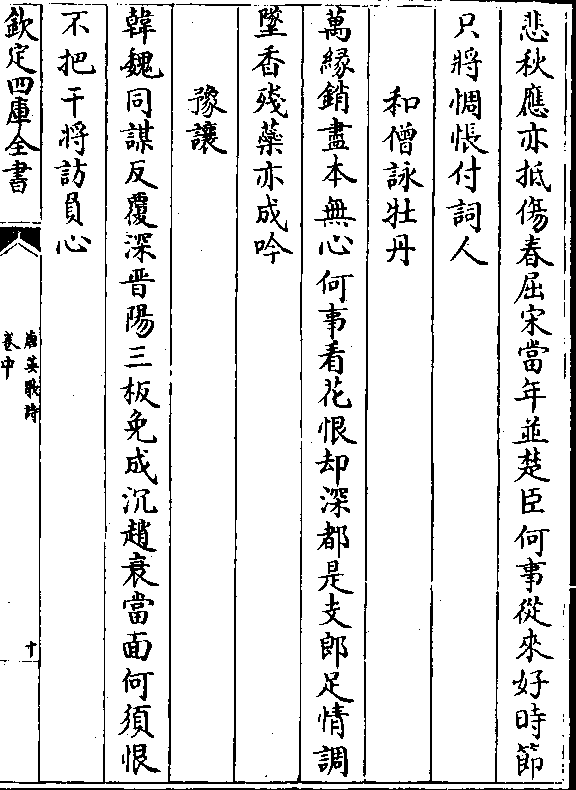 悲秋應亦抵傷春屈宋當年並楚臣何事從來好時節
只將惆悵付詞人
和僧詠牡丹
萬緣銷盡本無心何事看花恨却深都是支郎足情調
墜香殘蘂亦成吟
豫讓
韓魏同謀反覆深晉陽三板免成沉趙衰當面何須恨
不把干將訪負心
欽定四庫全書
唐英歌詩
卷中
十